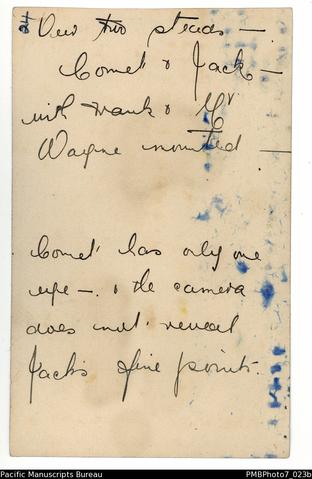 24
Our two steads —
Comet & Jack —
with Frank & Mr
Wayne mounted —
Comet has only one
eye —. & the camera
does not reveal
Jack's fine points.
Pacific Manuscripts Bureau
PMBPhoto7_023b